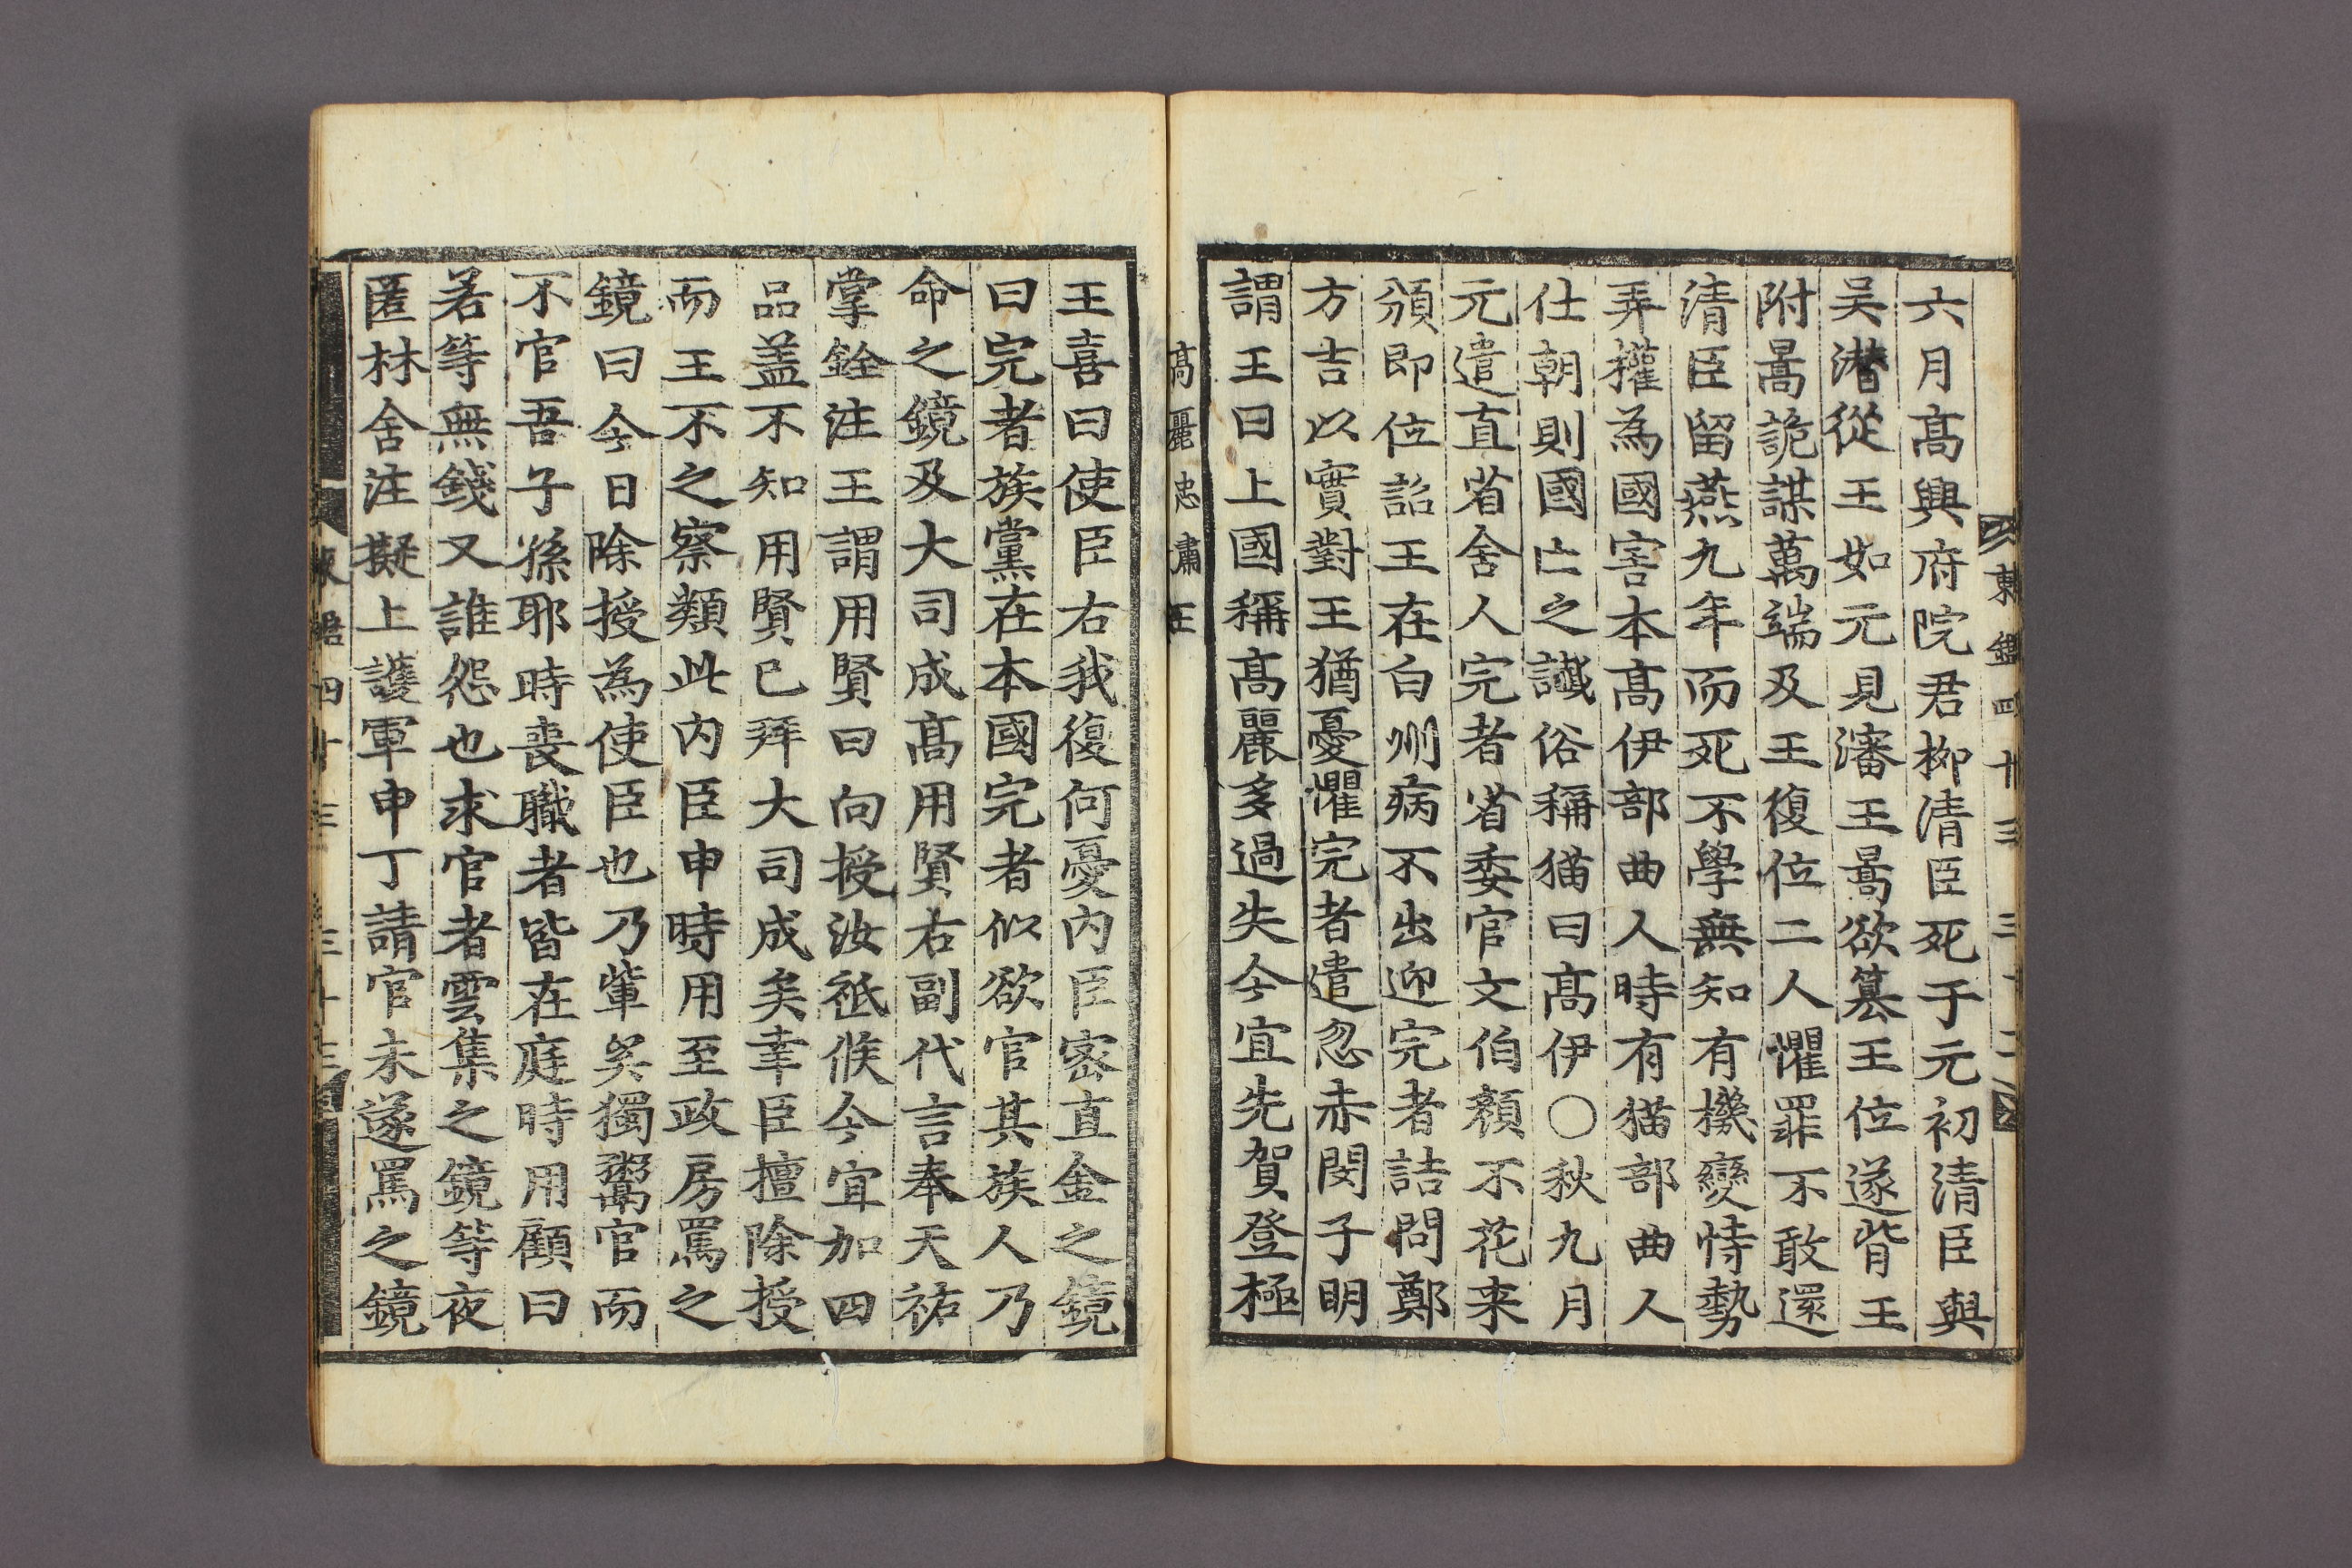 六月高興府院君柳清臣死于元初清臣與
吴潛從王如元見瀋王暠欲簒王位遂背王
附暠詭謀萬端及王復位二人懼罪不敢還
清臣留燕九年而死不學無知有機變恃勢
弄權為國害本高伊部曲人時有猫部曲人
仕朝則國亡之讖俗稱猫曰高伊〇秋九月
元遣直省舍人完者省委官文伯顔不花来
頒即位詔王在白州病不出迎完者詰問鄭
方吉以實對王猶憂懼完者遣忽赤閔子明
謂王曰上國稱高麗多過失今宜先賀登極
高麗忠肅王
王喜曰使臣右我復何憂内臣密直金之鏡
曰完者族黨在本國完者似欲官其族人乃
命之鏡及大司成高用賢右副代言奉天祐
掌銓注王謂用賢曰向授汝祗候今宜加四
品盖不知用賢已拜大司成矣幸臣擅除授
而王不之察類此内臣申時用至政房罵之
鏡曰今日除授為使臣也乃輩吴獨鬻官而
不官吾子孫耶時喪職者皆在庭時用顧曰
若等無錢又誰怨也求官者雲集之鏡等夜
匿林舍注擬上護軍申丁請官未遂罵之鏡